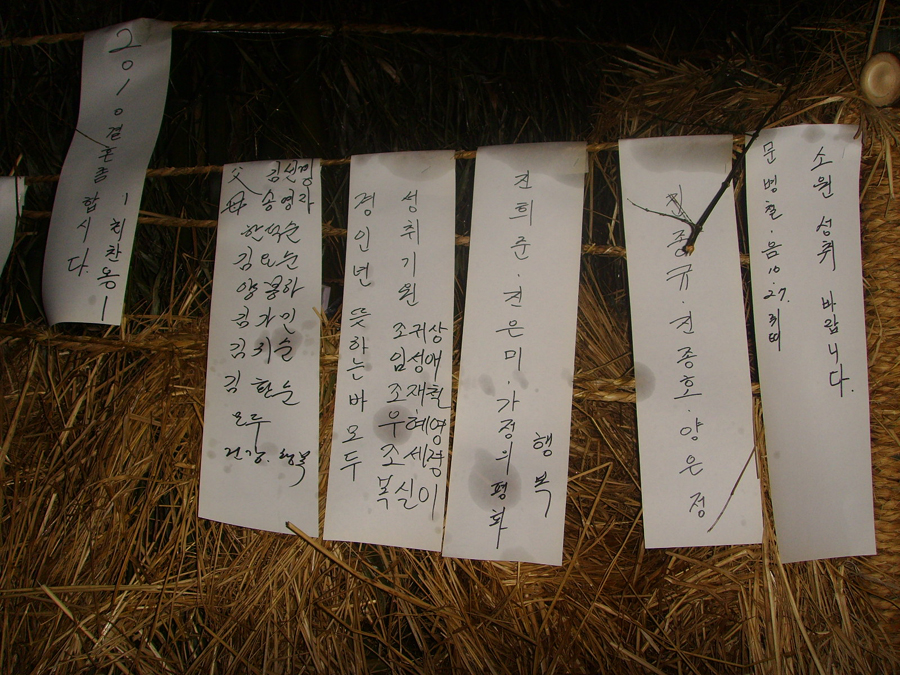 2010 결혼좀합시다.
ㅡ최찬옹ㅡ
父 김선명
母 송영자
양봉하
김가인
김지슬
김한늘
모두
건강.행복
경인년 뜻하는바 모두
성취기원
조귀상
임성애
조재현
우혜영
조세령
복실이
전희준.전은미.가정의평화
행복
전종규.전종호.양은정
소원 성취 바랍니다.
문병철.음10.27.